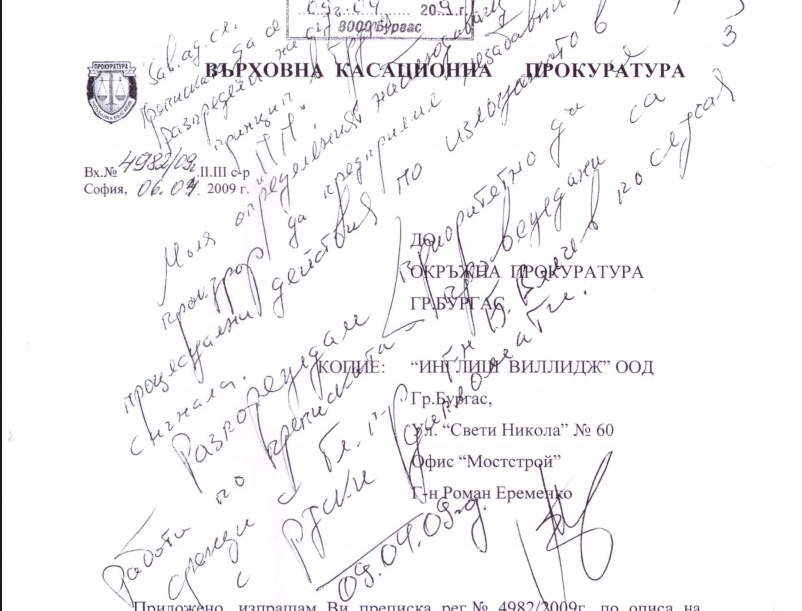 09.04 2009 г.
8000 Бургас
Зав. ад. сл.
Преписката да се
разпредели на
принцип
ПП.
ПРОКУРАТУРА
ВЪРХОВНА КАСАЦИОННА ПРОКУРАТУРА
Вх.№ 4982/09г. .II.III с-р
София, 06.04. 2009 г.
Моля определения наблюдаващ
прокурор да предприеме незабавни
процесуални действия по изложеното в
сигнала.
Разпореждам приоритетно да
работи по преписката
09.04.09г.
ДО
ОКРЪЖНА ПРОКУРАТУРА
ГР.БУРГАС
КОПИЕ: “ИНГЛИШ ВИЛЛИДЖ” ООД
Гр.Бургас,
Ул. “Свети Никола” № 60
Офис “Мостстрой”
Г-н Роман Еременко
Приложено изпращам Ви преписка рег.№ 4982/2009г. по описа на